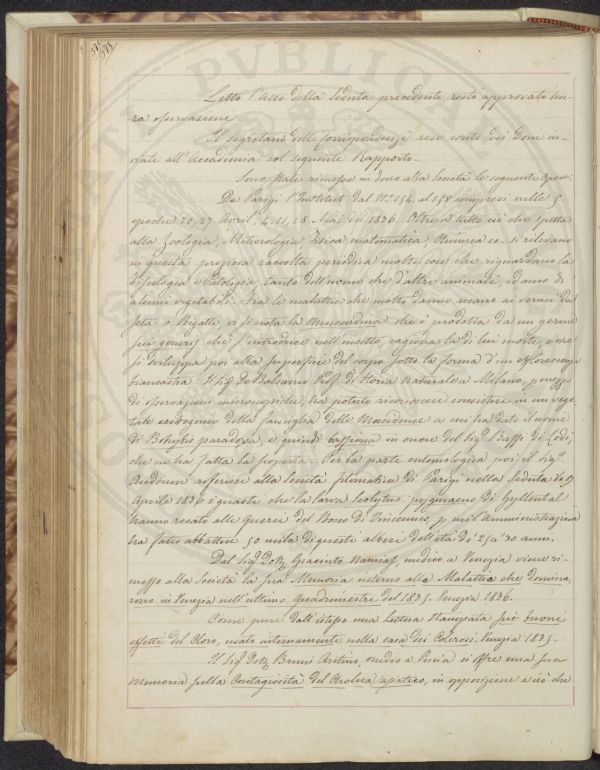 Letto l'atto della Seduta precedente restò approvato sen-
za osservazione
Il Segretario delle Corrispondenze rese conto dei Doni in-
viati all'Accademia col seguente Rapporto.
Sono state rimesse in dono alla Società le seguenti Opere.
Da Parigi l'Institut dal N.º 154, al 158 compresi nelle 5
epoche 20, 27 Avril, 4, 11, 18 Mai del 1836. Oltre a tutto ciò che spetta
alla Zoologia, Meteorologia, Fisica matematica, Chimica ec. si rilevano
in questa preziosa raccolta periodica molte cose che riguardano la
Fisiologia e Patologia, tanto dell'uomo che d'altri animali, ed anco di
alcuni vegetabili. Tra le malattie che molto danno recano ai vermi da
seta, o Bigatti, vi si nota la Muscardina che è prodotta da un germe
sui generis che s'introduce nell'insetto, cagiona la di lui morte, e che
si sviluppa poi alla superficie del corpo sotto la forma d'un efflorescenza
biancastra Il Sig. De Balsamo Prof. di Storia Naturale a Milano, p. mezzo
di osservazioni microscopiche, ha potuto riconoscere consistere in un vege-
tale crittogamo della famiglia delle Mucidinee a cui ha dato il nome
di Botrytis paradoxa, e quindi bassiana in onore del Sig. Bassi di Lodi,
che ne ha fatta la scoperta. Per la parte entomologica poi il Sig.
Audouin referisce alla Società filomatica di Parigi nella Seduta de 9
Aprile 1836 i guasti che la larva Scolytus pygmaeus di Gyllental
hanno recato alle Querci del Bosco di Vincennes, p. cui l'Amministrazione
ha fatto abbattere 50 mila di questi alberi dell'età di 25 a 30 anni.
Dal Sig. Dott. Giacinto Namias, medico a Venezia viene ri-
messo alla Società la sua Memoria intorno alla Malattia che domina
rono in Venezia nell'ultimo quadrimestre del 1835. Venezia 1836.
Come pure dall'istesso una Lettera stampata sui buoni
effetti del Cloro, usato internamente nella casa dei Colerosi Venezia 1835.
Il Sig. Dott. Bruni Aretino, medico a Pescia ci offre una sua
Memoria sulla Contagiosità del Cholera asiatico, in opposizione a ciò che